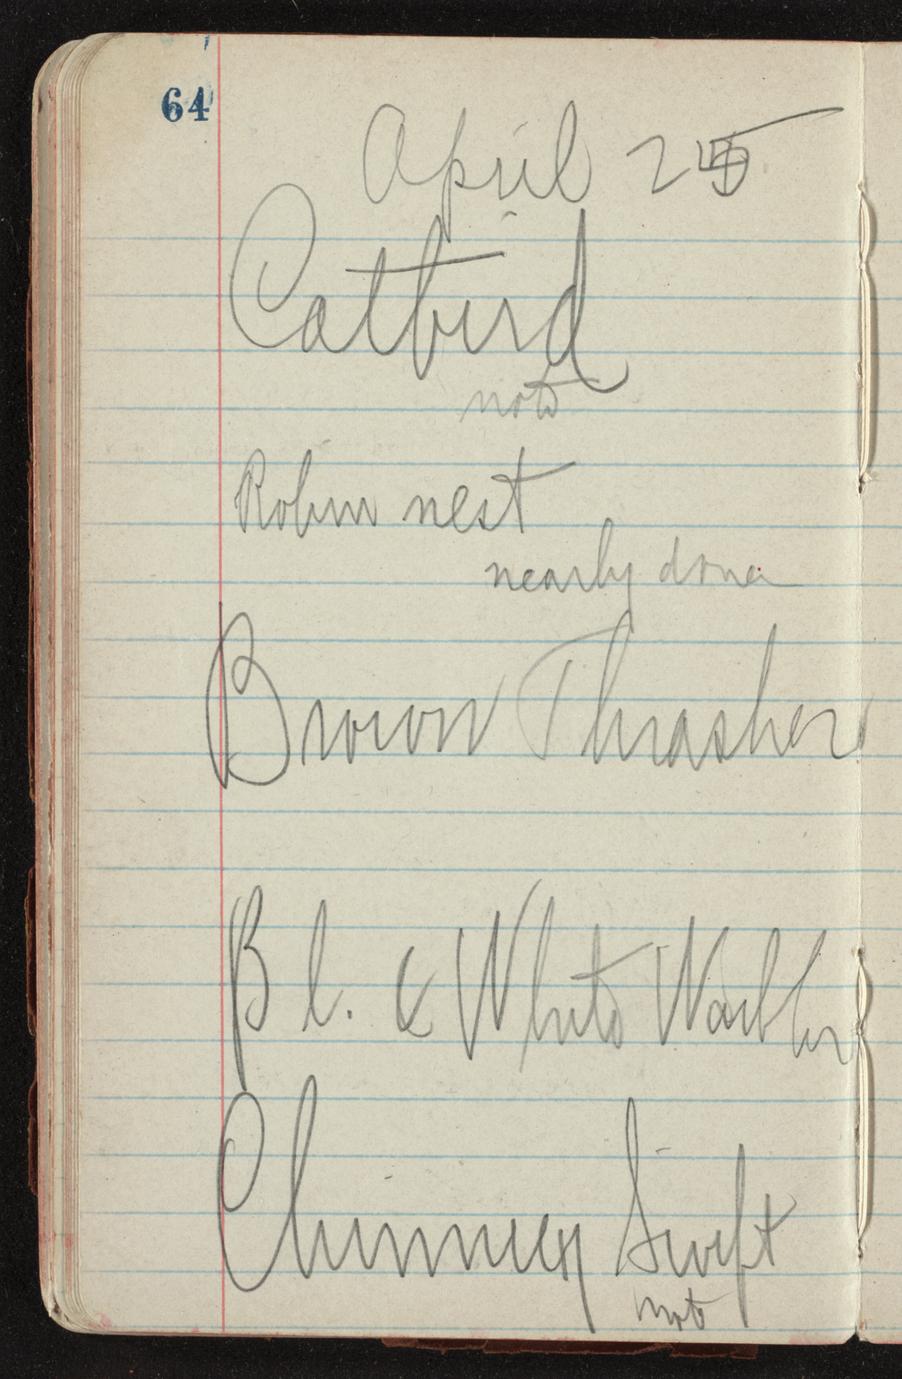 64
April 25
Catbird
note
Robin nest
nearly done
Brown Thrasher
Bl. & White Warbler
Chimney Swift
note